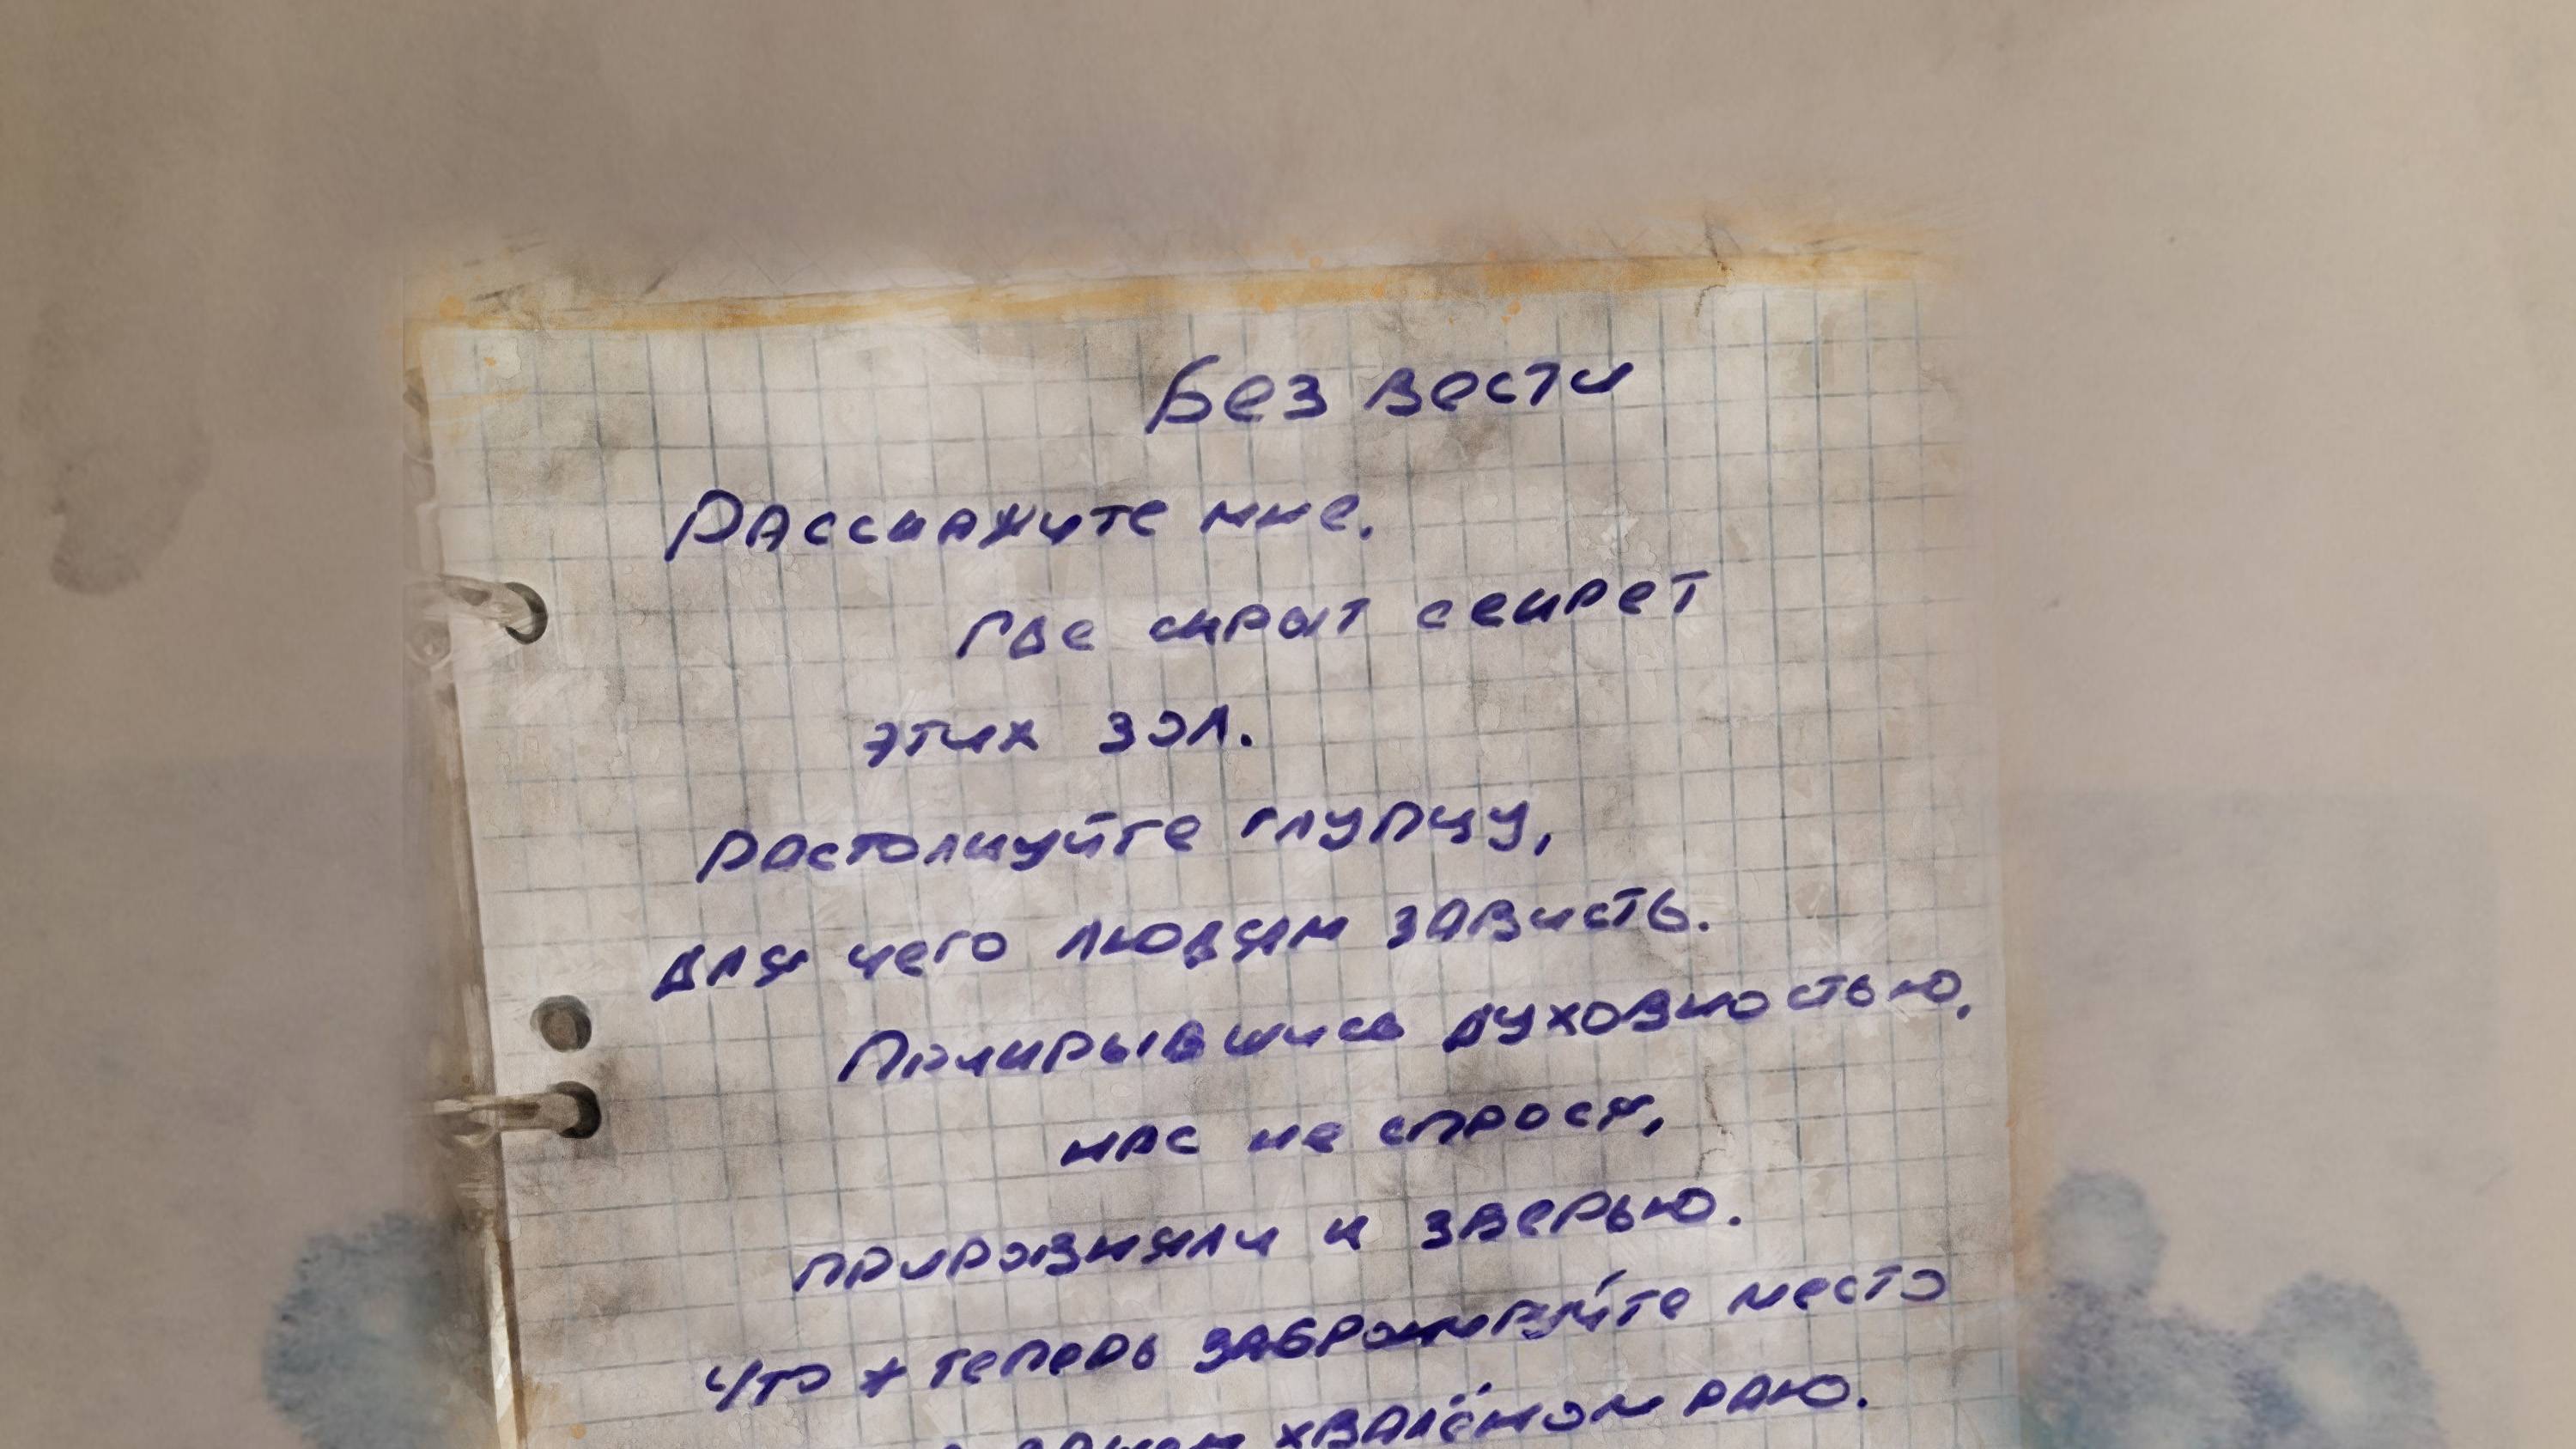 Без вести
Расскажите мне.
Где скрыт секрет
этих зол.
Растолкуйте глупцу,
Для чего людям зависть.
Прикрывшись духовностью,
нас не спрося,
прировняли к зверью.
Что ж теперь забронируйте место
хвалёном раю.